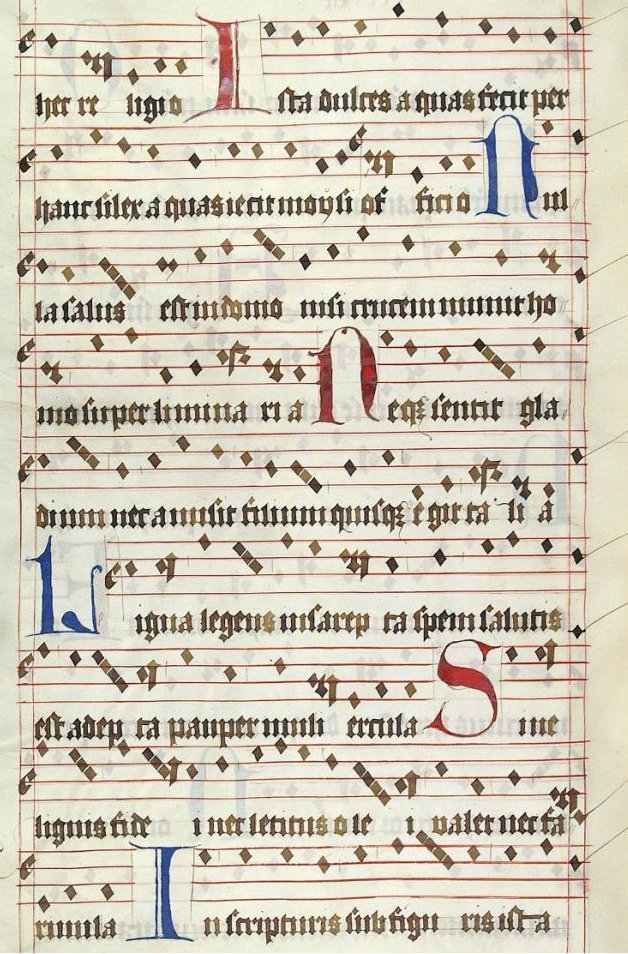 her re ligio Ista dulces aquas fecit per
hanc silex aquas iecit moysi off ficio Nul
la salus est in domo nisi crucem munit ho
mo super limina ri a Neqz sentit gla
dium nec amisit filium quisqz egit ta li a
Ligna legens in sarep ta spem salutis
est adep ta pauper muli ercula Sine
lignis fide i nec letitus ole i valet nec fa
rinula In scripturis sub figu ris ista